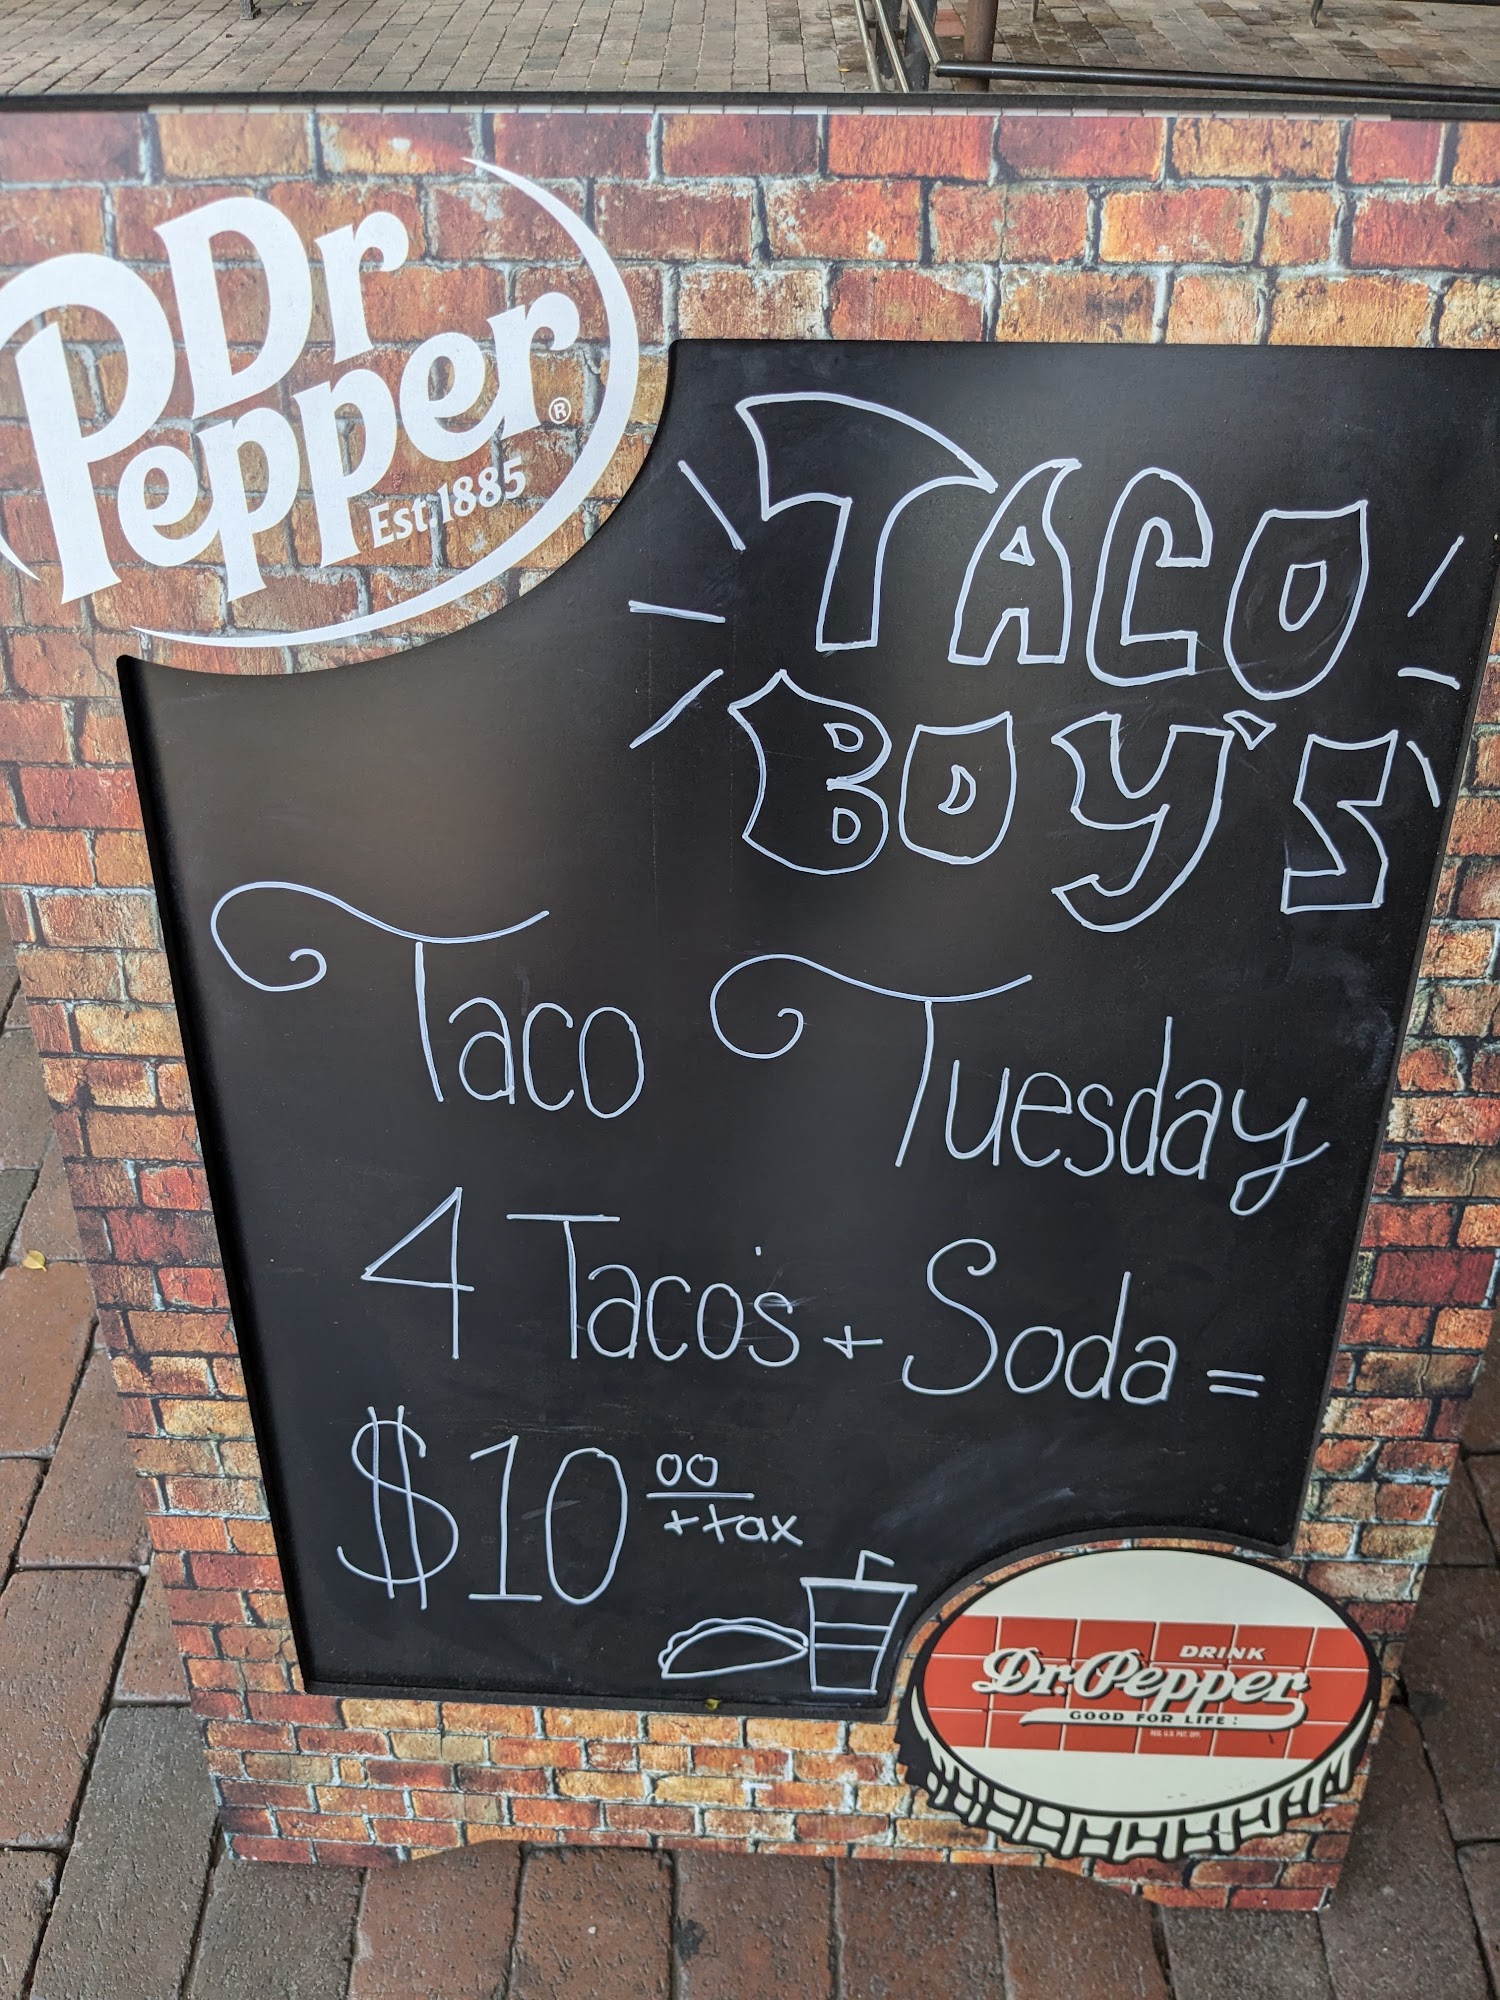 Dr
Pepper®
Est. 1885
TACO
BOY'S
Taco Tuesday
4 Taco's + Soda =
$10 00
+ tax
DRINK
Dr. Pepper
GOOD FOR LIFE!
REG. U.S. PAT. OFF.